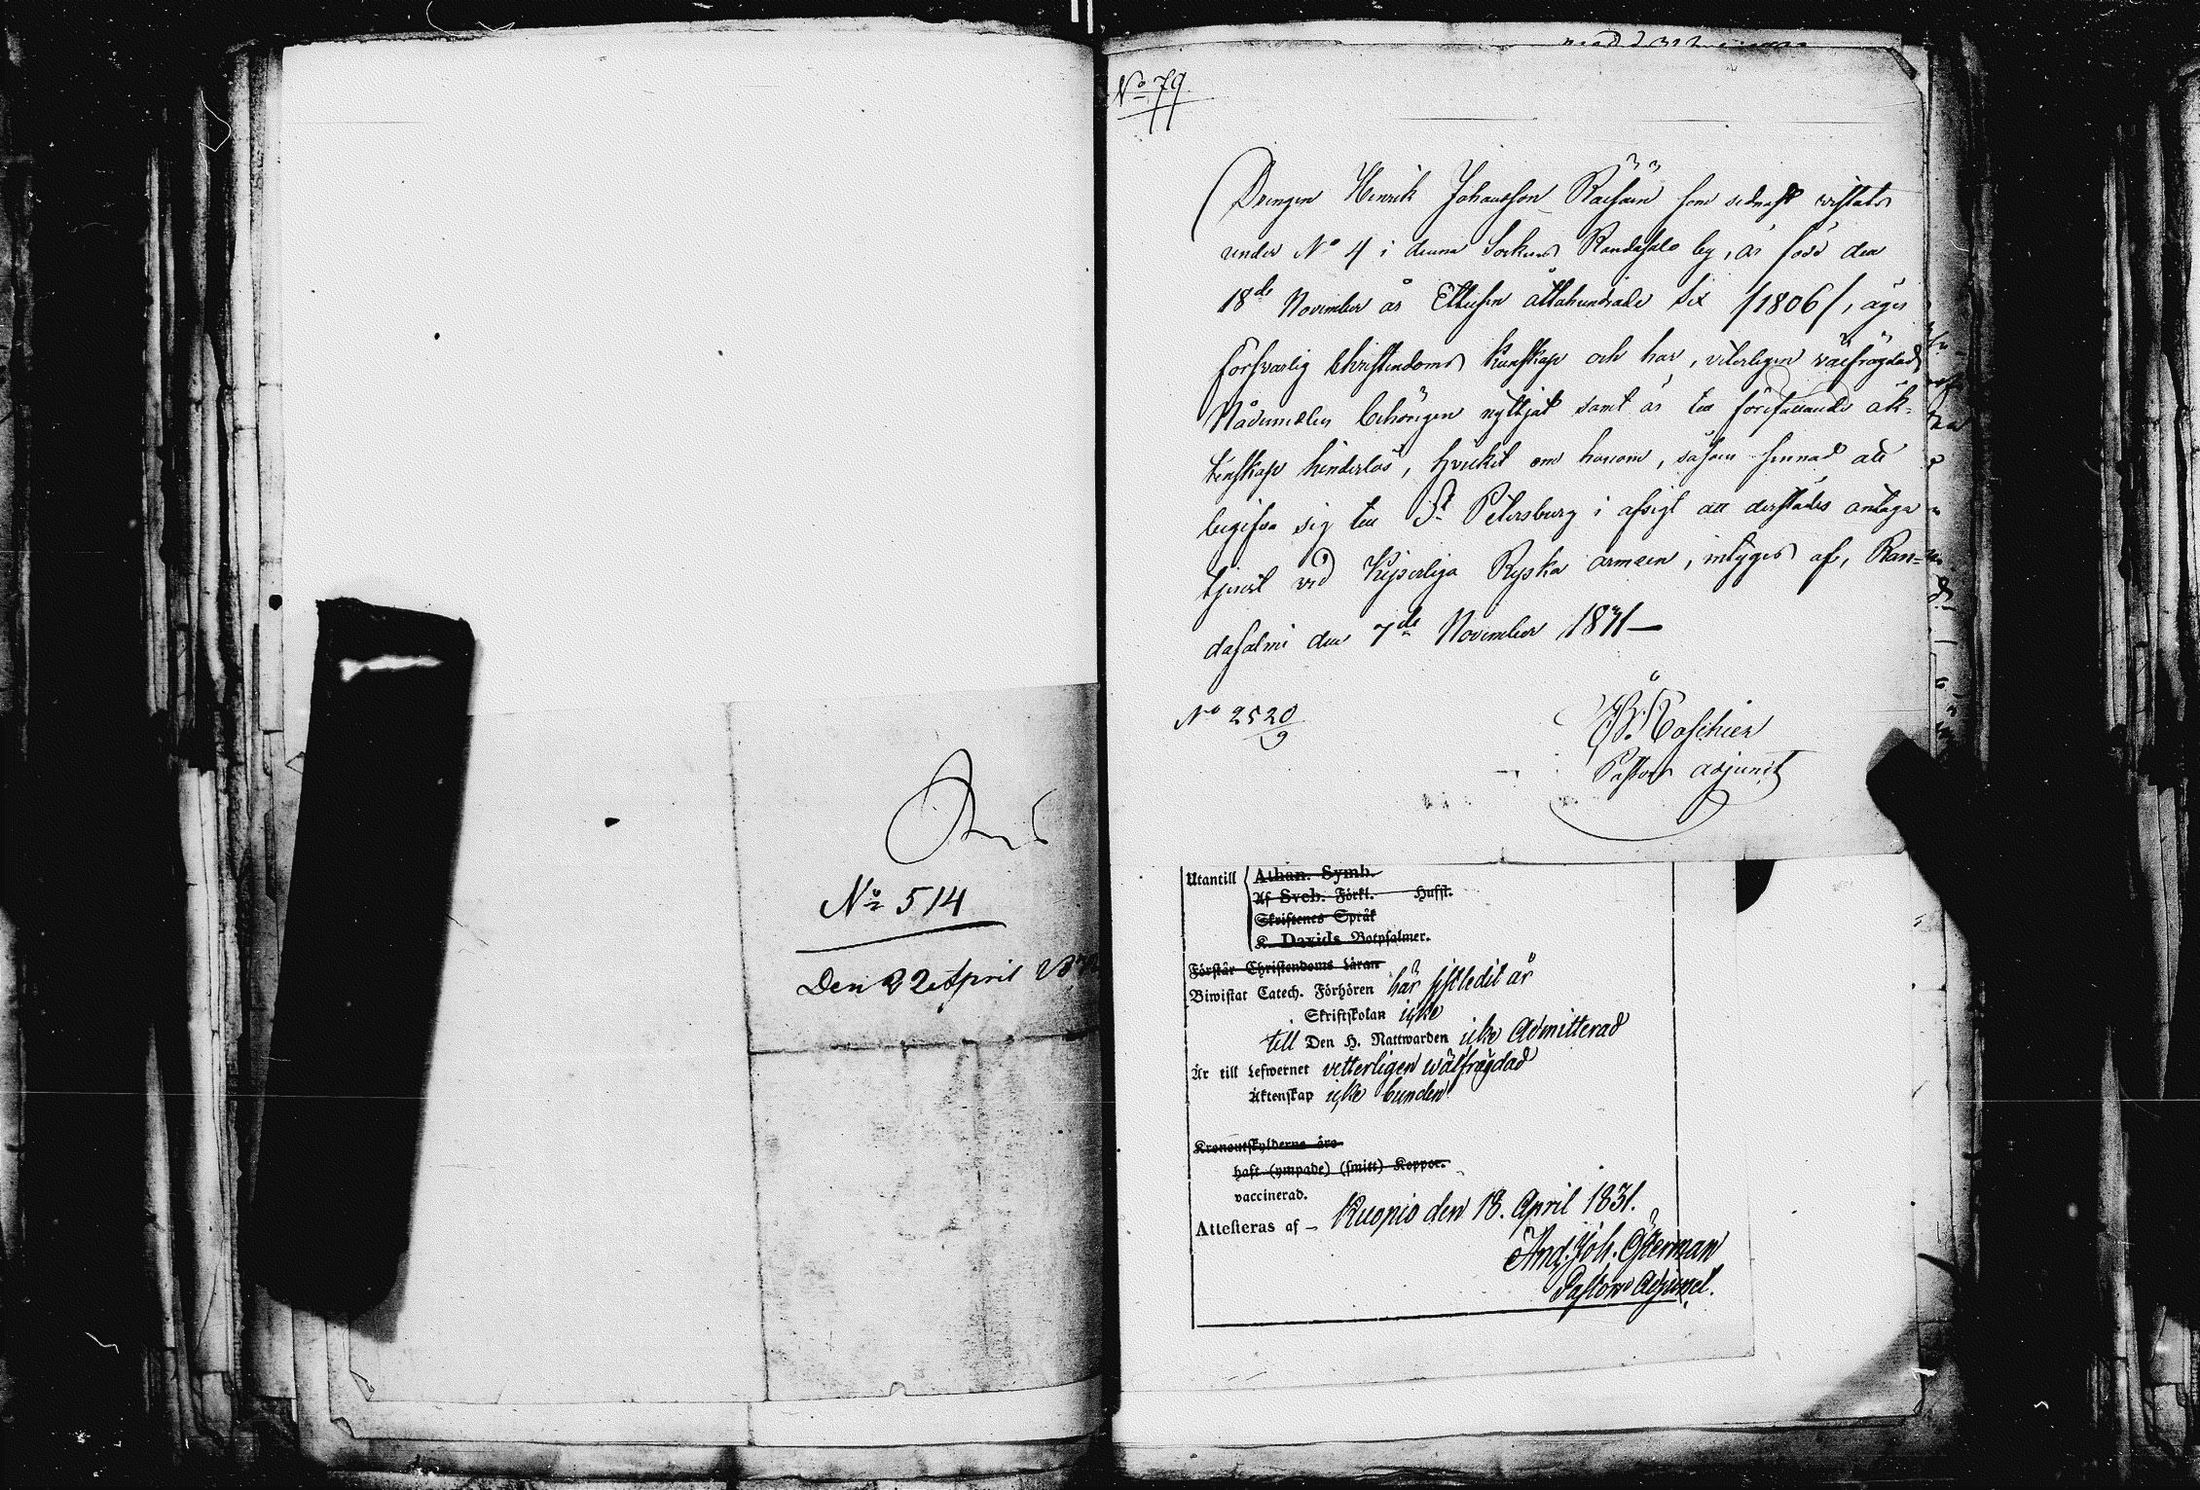 No 514
Den 22 April
No 79
Drengen Henrik Johansson Räisäin som sednast vistats
under No 4 i denna Sockens Randasalo by, är född den
18de November år Ettusen åttahundrade Sex /1806/, äger
försvarlig Christendoms kunskap och har, veterligen välfrägdad,
Nådemedlen behörigen nyttjat samt är till förefallande äk-
tenskap hinderlös, hvilket om honom, såsom sinnad att
begifva sig till St Petersburg i afsigt att derstädes antaga
tjenst vid Kejserliga Ryska armeen, intygas af, Ran-
dasalmi den 7de November 1831—
No 2520
9
Pastors adjunct
Utantill Athan. Symb.
Af Sveb. Förkl. Hufst.
Skriftenes Språk
K. Davids Botpsalmer.
Förstår Christendoms Läran
Biwistat Catech. Förhören här sistledit år
Skriftskolan icke
till Den H. Nattwarden icke Admitterad
Är till Lefwernet vetterligen wälfrägdad
Äktenskap icke bunden
Kronoutskylderna äro
haft (ympade) (smitt) Koppor.
vaccinerad.
Attesteras af – Kuopio den 18. April 1831.
And. Joh. Österman
Pastors Adjunct.